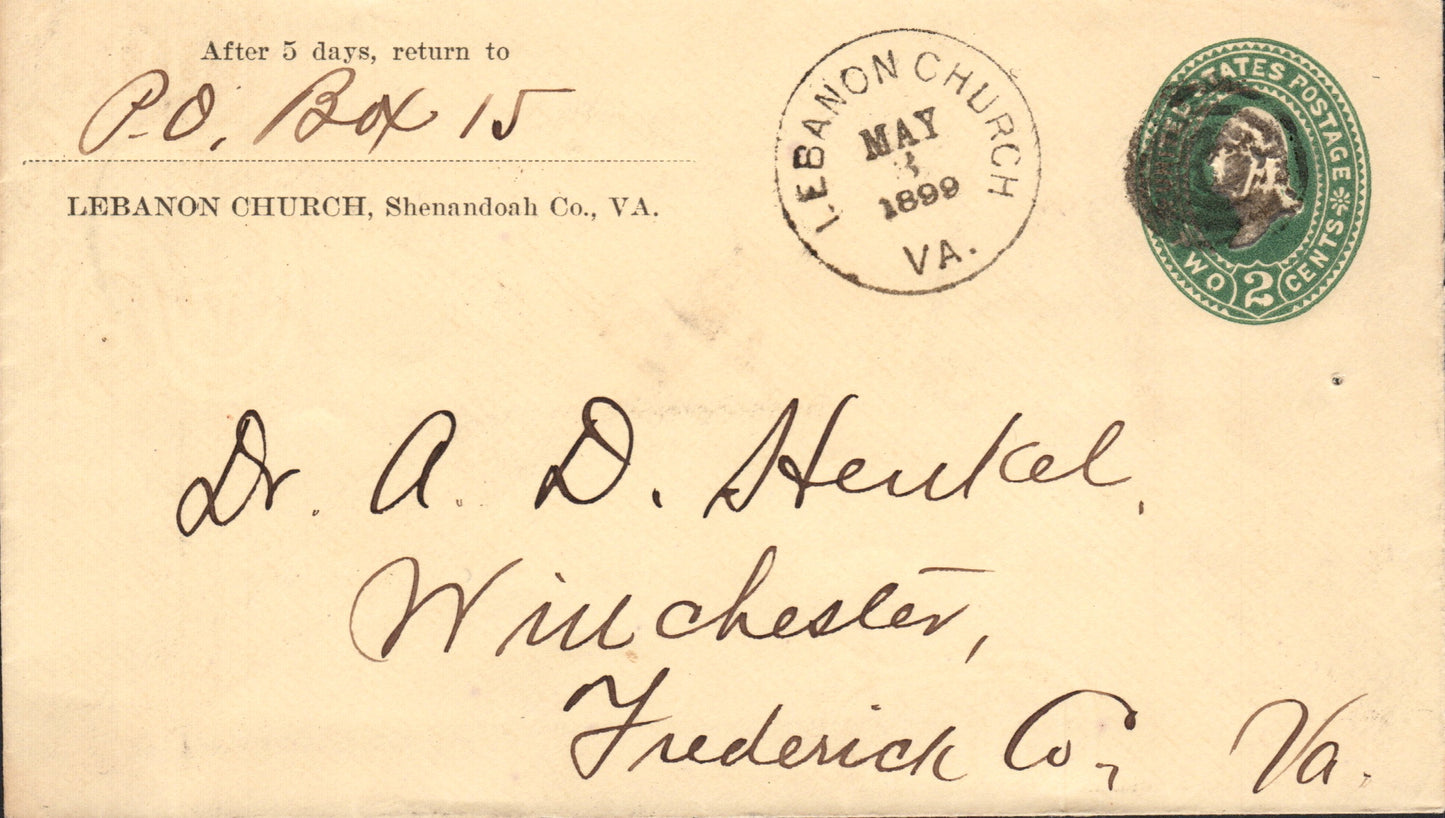 After 5 days, return to
P.O. Box 15
LEBANON CHURCH, Shenandoah Co., VA.
LEBANON CHURCH
MAY
3
1899
VA.
UNITED STATES POSTAGE
TWO 2 CENTS
Dr. A. D. Henkel,
Winchester,
Frederick Co, Va.